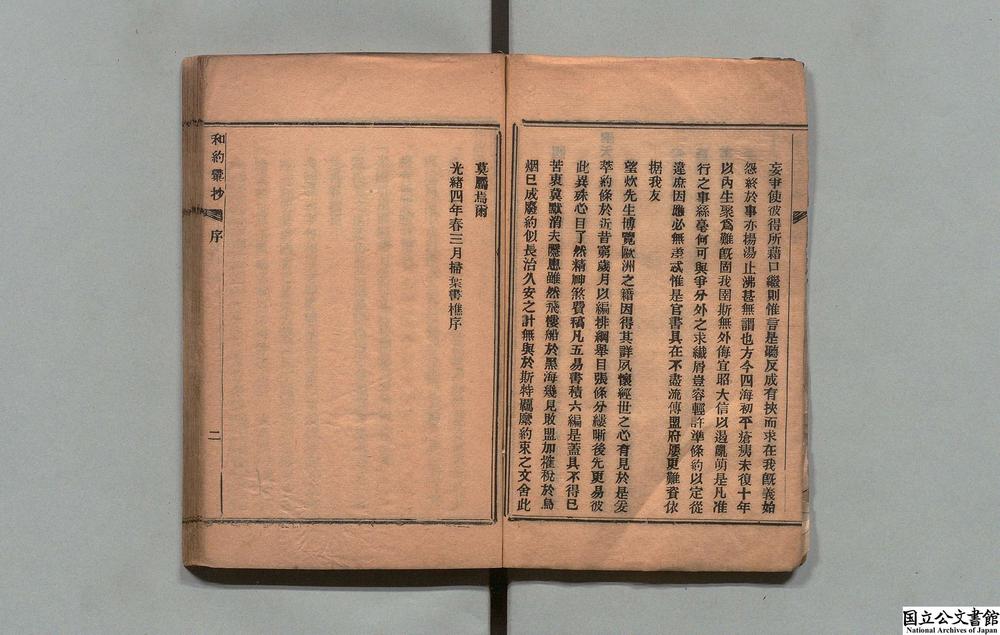 妄尹使彼得所藉口繼則惟言是聽反成有挾而求在我旣義始
怨終於事亦揚湯止沸甚無謂也方今四海初平瘡痍未復十年
以內生聚爲難旣固我圉斯無外侮宜昭大信以遏亂萌是凡准
行之事絲毫何可與爭分外之求纖屑豈容輕許準條約以定從
違庶因應必無差忒惟是官書具在不盡流傳盟府屢更難資依
据我友
望炊先生博覽歐洲之籍因得其詳夙懷經世之心有見於是爰
萃約條於近昔窮歲月以編排綱舉目張條分縷晰後先更易彼
此異殊心目了然精神煞費稿凡五易書積六編是蓋具不得已
苦衷冀默消夫隱患雖然飛樓船於黑海幾見敗盟加榷稅於烏
烟已成廢約似長治久安之計無與於斯特羈縻約束之文舍此
莫屬焉爾
光緒四年春三月掃葉書樵序
和約彙抄
序
二
国立公文書館
National Archives of Japan